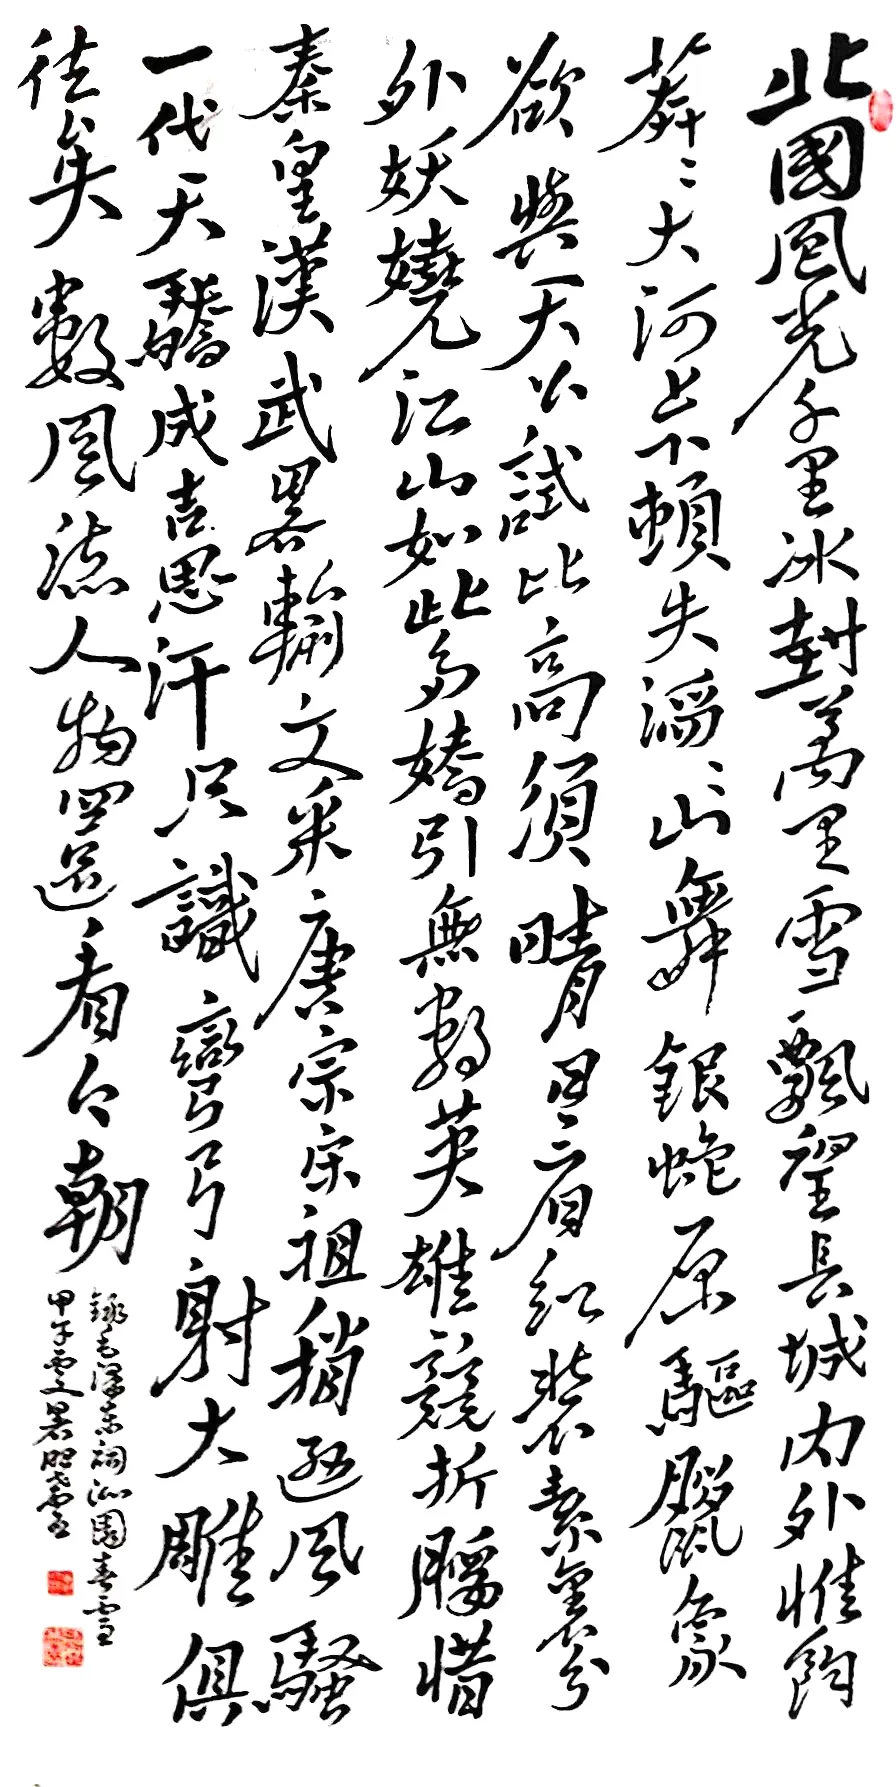 北國風光千里冰封萬里雪飄望長城内外惟餘
莽〻大河上下頓失滔〻山舞銀蛇原驅臘象
欲與天公試比高須晴日看紅裝素裹分
外妖嬈江山如此多嬌引無數英雄競折腰惜
秦皇漢武畧輸文采唐宗宋祖稍遜風騷
一代天驕成吉思汗只識彎弓射大雕俱
往矣數風流人物還看今朝
錄毛澤東詞沁園春雪
甲午夏暑